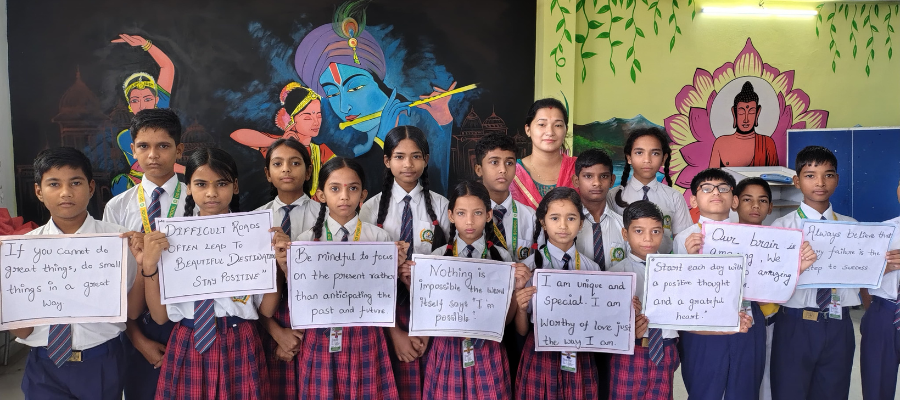 If you cannot do
great things, do small
things in a great
way
"Difficult Roads
often lead to
Beautiful Destination
Stay Positive"
Be mindful to focus
on the present rather
than anticipating the
past and future
Nothing is
impossible the word
itself says "I'm
possible".
I am unique and
special. I am
worthy of love just
the way I am.
Start each day with
a positive thought
and a grateful
heart."
Our brain is
We
amazing
Always believe that
failure is the
step to success